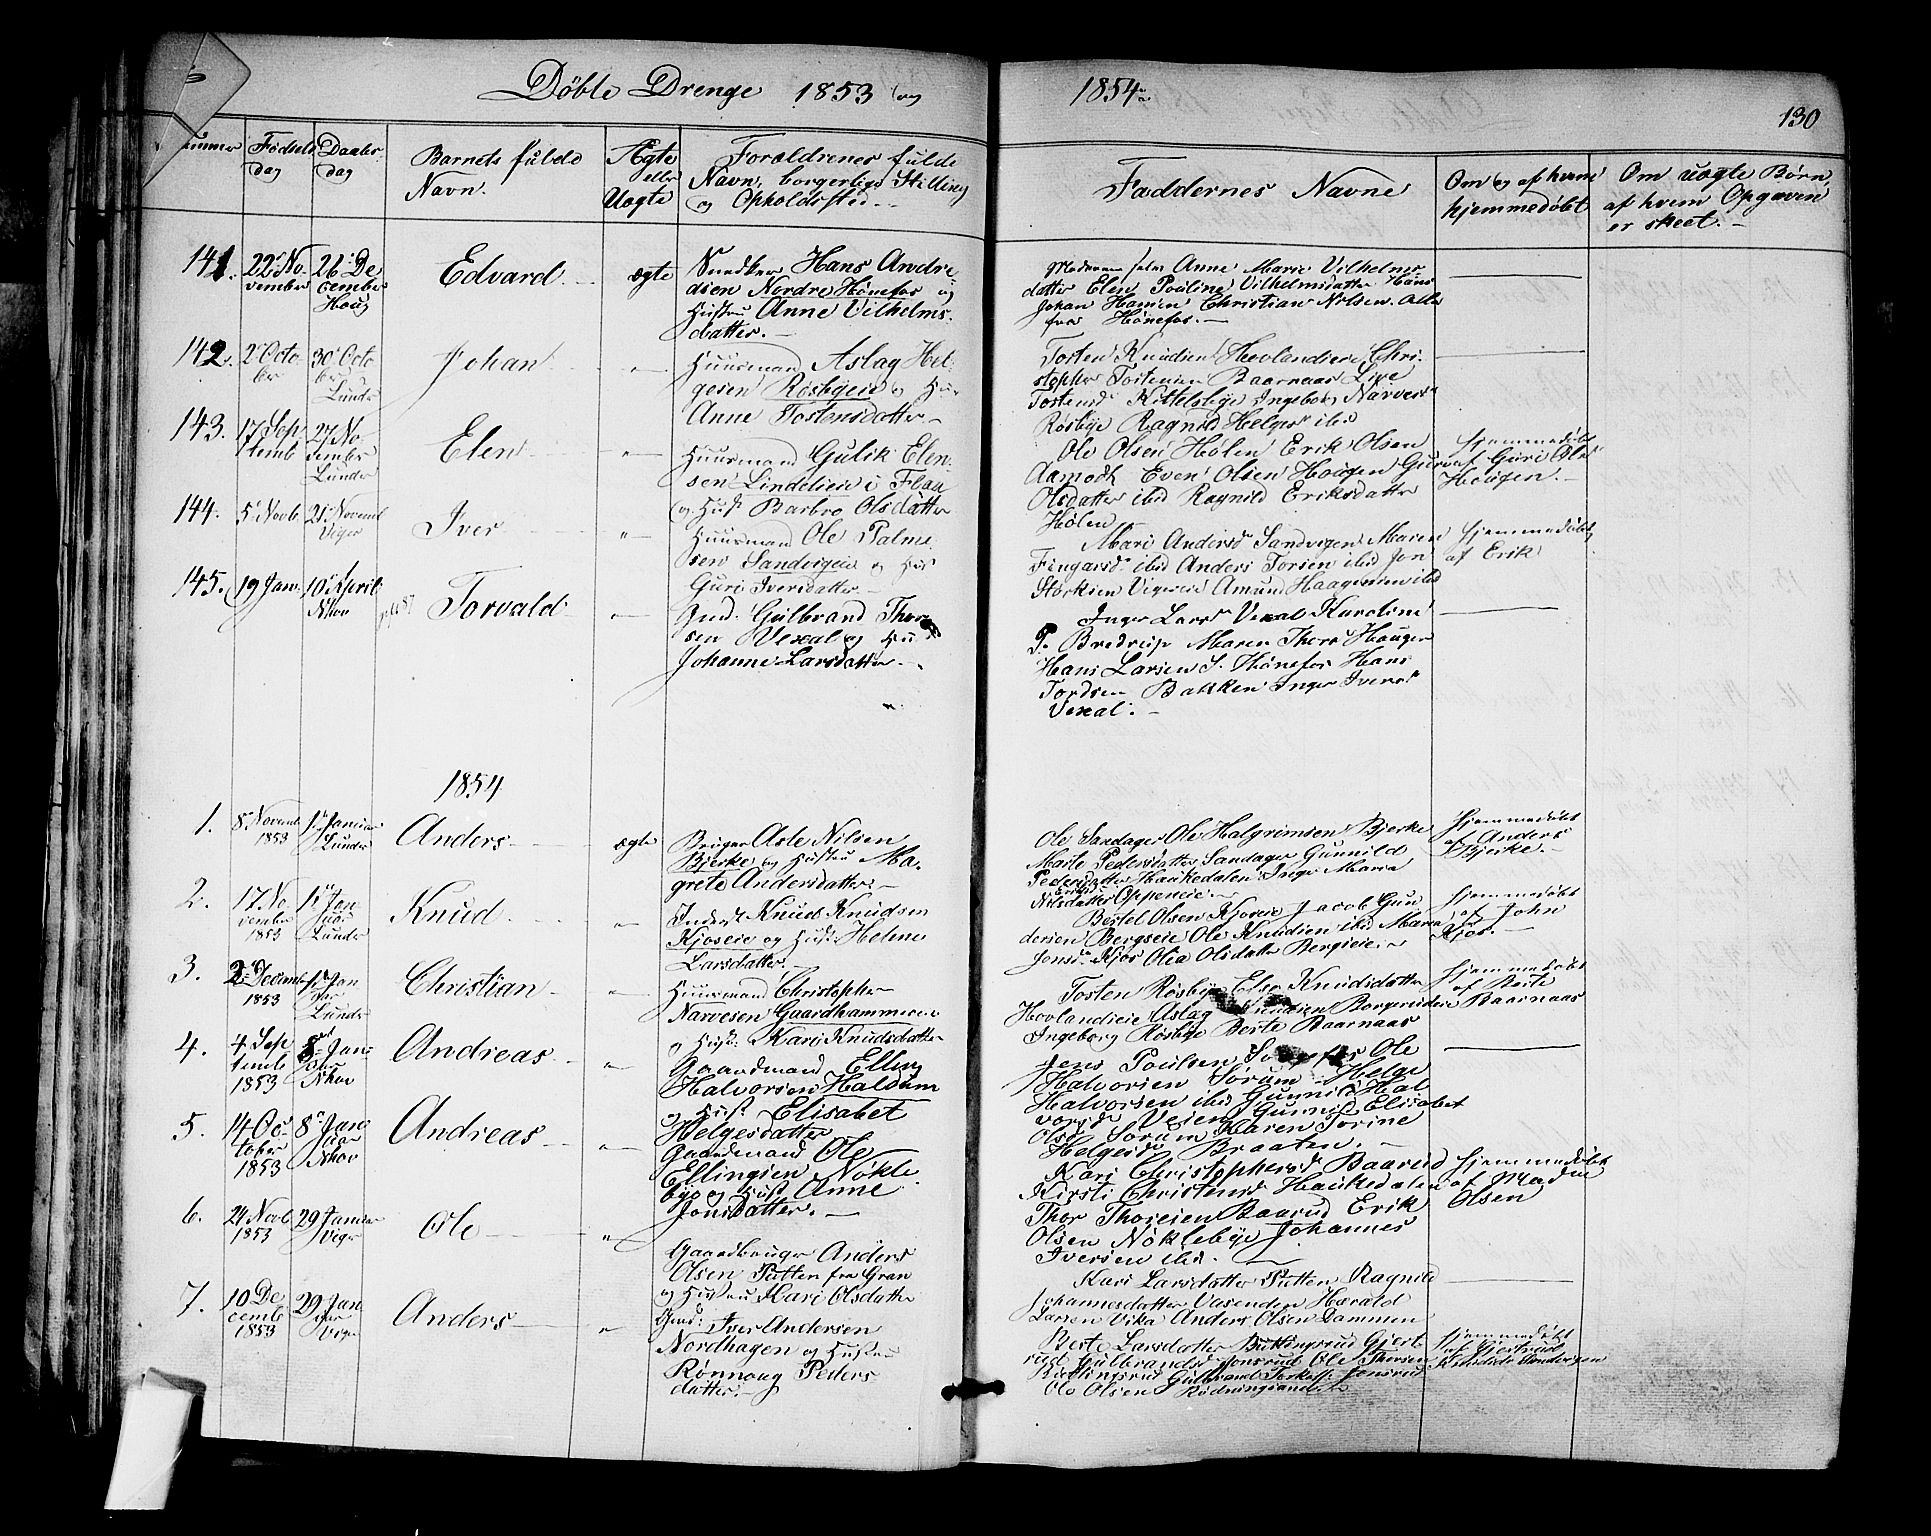 Döbte Drenge 1853 og
1854
130
Nummer
Födsels
dag
Daabs
dag
Barnets fulde
Navn.
Ægte
eller
Uægte
Forældrenes fulde
Navn, borgerlige Stilling
og Opholdssted.
Faddernes Navne
Om og af hvem
hjemmedöbt
Om uægte Börn,
af hvem Opgaven
er skeet.
141.
22 No-
vember
26 De
cember
Houg
Edvard
ægte
Snedker Hans Andre
Nordre Hönefos og
Hustru Anne Vilhelms-
datter.
Moderen selv Anne Marie Vilhelms-
datter Elen Pouline Vilhelmsdatter Hans
Johan Christian Nilsen. Alle
fra Hönefos.
142.
2 Octo-
ber
30 Octo
ber
Lunder
Johan
Huusmand Aslag Hel-
gesen Rösbyeie og Hus
Anne Tostensdatter
Tosten Knudsen Hovlandseie Chri-
stopher Tostensen Baarnaas Live
Tostensd Kittelsbye Ingeborg Narvesd
Rösbye Ragnild Helgesd ibid
143.
17 Sep
temb
27 No-
vember
Lunder
Elen
Huusmand Gulik Elen-
sen Lindelien i Flaa
og Hust Barbro Olsdatter
Ole Olsen Hölen Erik Olsen
Aamodt Even Olsen Hougen Guro
Olsdatter ibid Ragnild Eriksdatter
Hölen
hjemmedöbt
af Guri Olsd
Hougen.
144.
5 Novb
21 Novemb
Viger
Iver
Huusmand Ole Palme
sen Sandvigeie og Hus
Guri Iversdatter
Mari Andersd Sandvigen Maren
Fingarsd ibid Anders Torsen ibid Jon
Störksen Vigeseie Amund Haagensen ibid
hjemmedöbt
af Erik
145.
19 Jan.
10 April
Nhov
Torvald
Gmd. Gulbrand Thor
sen Vexal og Hu
Johanne Larsdatter.
Inger Larsd Vexal Karoline
P. Bredrup Maren Thora Hauger
Hans Larsen S. Hönefos Hans
Tordsen Bakken Inger Iversd
Vexal.
1854
1.
8 Novemb
1853
1 Januar
Lunder
Anders
ægte
Bruger Asle Nilsen
Bjerke og Hustru Ma-
grete Andersdatter.
Ole Sandager Ole Halgrimsen Bjerke
Marte Pedersdatter Sandager Gunnild
Pedersdatter Haukedalen Inger Maria
Nilsdatter Oppeneie.
hjemmedöbt
af Anders
Bjerke.
2.
17 No-
vember
1853
1 Jan
uar
Lunder
Knud
Inderst Knud Knudsen
Kjoseie og Hust Helene
Larsdatter
Bertel Olsen Kjoseie Jacob Gun
dersen Bergseie Ole Knudsen ibid Maren
Jonsd Kjos Olia Olsdatter Bergseie
hjemmedöbt
af John
Kjos.
3.
2 Decemb
1853
1 Jan
uar
Lunder
Christian
Huusmand Christopher
Narvesen Gaardhammeren
og Hust. Kari Knudsdatter
Tosten Rösbye Else Knudsdatter
Hovlandseie Aslag Knudsen Borgerudeie
Ingeborg Rösbye Berte Baarnaas
hjemmedöbt
af Berte
Baarnaas
4.
4 Sep
temb
1853
8 Jan-
uar
Nhov
Andreas
Gaardmand Elling
Halvorsen Haldum
og Hust Elisabet
Helgesdatter
Jens Poulsen Ole
Halvorsen Sörum Helge
Halvorsen ibid Gunnild Hal
vorsd Veien Gunnild Elisabet
Olsd Sörum Karen Torine
Helgesd Braaten.
5.
14 Oc-
tober
1853
8 Jan-
uar
Nhov
Andreas
Gaardmand Ole
Ellingsen Nökle-
bye og Hust Anne
Jonsdatter.
Kari Christophersd Baarud
Kirsti Christensd Haukedalen
Thor Thoresen Baarud Erik
Olsen Nöklebye Johannes
Iversen ibid.
hjemmedöbt
af
Olsen
6.
24 Novb
1853
29 Januar
Viger
Ole
Gaardbruger Anders
Olsen Putten fra Gran
og Hustru Kari Olsdatter
Kari Larsdatter Putten Ragnild
Johannesdatter Vasenden Harald
Larsen Vika Anders Olsen Dammen
7.
10 De
cemb
1853
29 Jan
uar
Viger
Anders
Gmd: Iver Andersen
Nordhagen og Hustru
Rönnaug Peders
datter.
Berte Larsdatter Buttingsrud Gjert
rud Gulbrandsd Jonsrud Ole Thorsen
Buttingsrud Gulbrand Jonsrud
Ole Olsen
hjemmedöbt
af Gjertrud